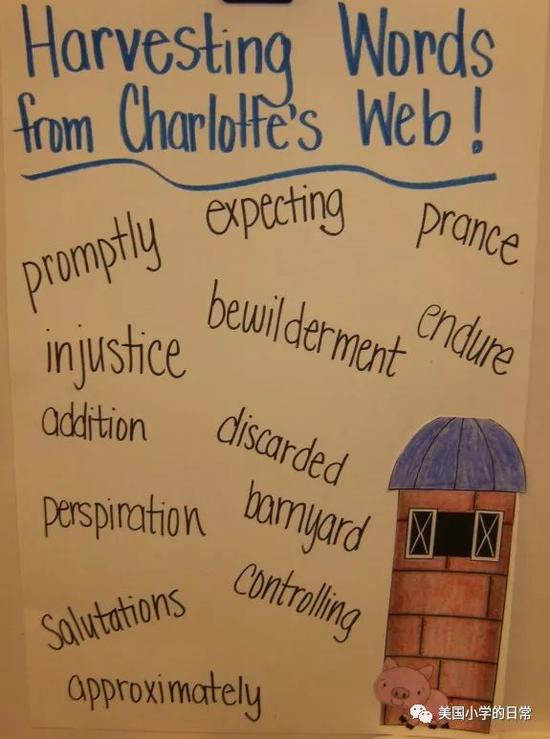 Harvesting Words
from Charlotte's Web!
expecting
prance
promptly
bewilderment
endure
injustice
addition
discarded
perspiration
barnyard
controlling
Salutations
approximately
美国小学的日常